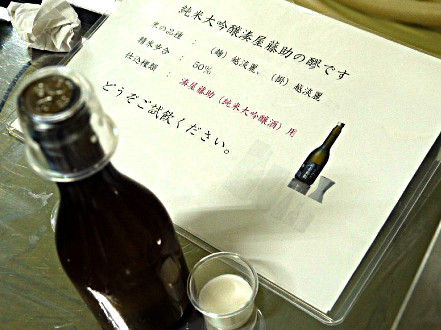 純米大吟醸湊屋藤助の醪です
米の品種 : (麹)越淡麗、(掛)越淡麗
精米歩合 : 50%
仕込種類 : 湊屋藤助(純米大吟醸酒)用
どうぞご試飲ください。